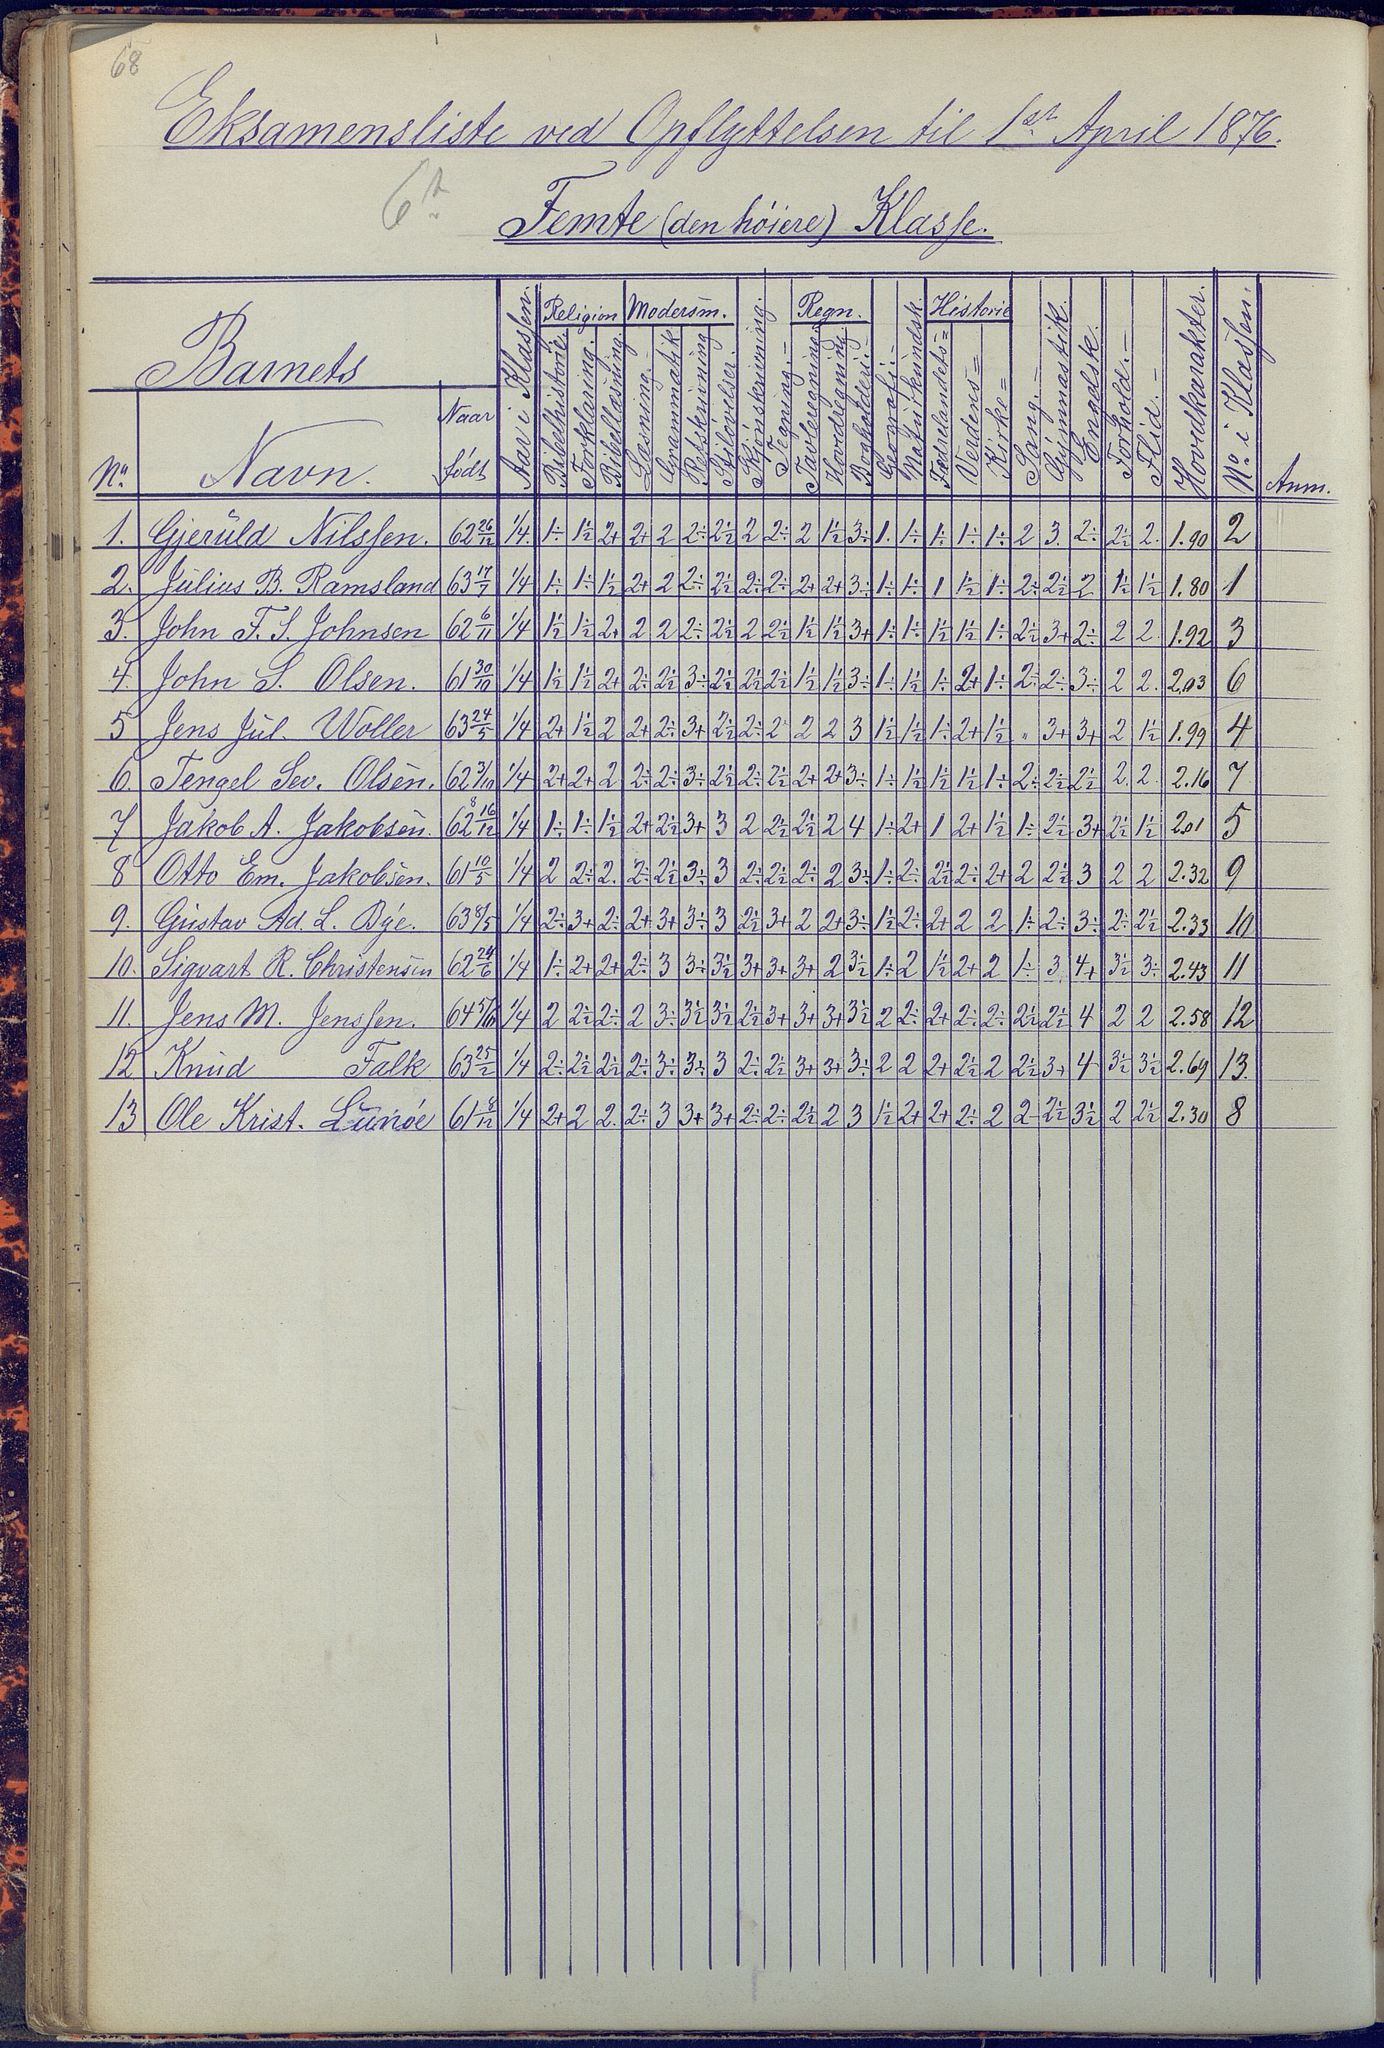 68
Eksamensliste ved Opflyttelsen til 1ste April 1876.
6te
Femte (den höiere) Klasse.
Barnets
No. Navn. Naar født Aar i Klassen. Religion Bibelhistorie. Forklaring. Bibellæsning. Modersm. Læsning. Grammatik Retskrivning Stiløvelser. Skjönskrivning. Tegning. Regn. Tavleregning. Hovedregning. Bogholderi. Geografi. Naturkundsk. Historie Fædrelandets= Verdens= Kirke= Sang. Gymnastik. Engelsk. Forhold. Flid. Hovedkarakter. No. i Klassen. Anm.
1. Gjerüld Nilssen. 62 26/12 1/4. 1÷ 1½ 2+ 2+ 2 2÷ 2½ 2 2÷ 2 1½ 3÷ 1. 1÷ 1÷ 1÷ 1÷ 2 3. 2÷ 2½ 2. 1.90 2
2. Julius B. Ramsland 63 17/7 1/4 1÷ 1÷ 1½ 2+ 2 2÷ 2½ 2÷ 2÷ 2+ 2+ 3÷ 1÷ 1÷ 1 1½ 1÷ 2÷ 2½ 2 1½ 1½ 1.80 1
3. John F. S. Johnsen 62 6/11 1/4 1½ 1½ 2+ 2 2 2÷ 2½ 2 2½ 1½ 1½ 3+ 1÷ 1÷ 1½ 1½ 1÷ 2½ 3+ 2÷ 2 2. 1.92 3
4. John S. Olsen. 61 30/10 1/4 1½ 1½ 2+ 2÷ 2½ 3÷ 2½ 2½ 2½ 1½ 1½ 3÷ 1÷ 1½ 1÷ 2+ 1÷ 2÷ 2÷ 3÷ 2 2. 2.03 6
5 Jens Jul. Woller 63 24/5 1/4 2+ 1½ 2 2+ 2÷ 3+ 2½ 2÷ 2 2 2 3 1½ 1½ 1÷ 2+ 1½ " 3+ 3+ 2 1½ 1.99 4
6. Tengel Sev. Olsen. 62 3/10 1/4 2+ 2+ 2 2÷ 2÷ 3÷ 2½ 2÷ 2÷ 2+ 2+ 3÷ 1÷ 1½ 1½ 1½ 1÷ 2÷ 2½ 2½ 2. 2. 2.16 7
7 Jakob A. Jakobsen. 62 16/12 1/4 1÷ 1÷ 1½ 2+ 2½ 3+ 3 2 2½ 2½ 2 4 1÷ 2+ 1 2+ 1½ 1÷ 2½ 3+ 2½ 1½ 2.01 5
8 Otto Em. Jakobsen. 61 10/5 1/4 2 2÷ 2. 2÷ 2½ 3÷ 3 2÷ 2½ 2÷ 2 3÷ 1÷ 2÷ 2½ 2÷ 2+ 2 2½ 3 2 2 2.32 9
9. Gustav Ad. L. Bye. 63 8/5 1/4 2÷ 3+ 2÷ 2+ 3+ 3÷ 3 2½ 3+ 2 2+ 3÷ 1½ 2÷ 2+ 2 2 1÷ 2÷ 3÷ 2÷ 2½ 2.33 10
10. Sigvart R. Christensen 62 24/6 1/4 1÷ 2+ 2+ 2÷ 3 3÷ 3½ 3+ 3+ 3+ 2 3½ 1÷ 2 1½ 2+ 2 1÷ 3 4+ 3½ 3÷ 2.43 11
11. Jens M. Jenssen. 64 5/10 1/4 2 2½ 2÷ 2 3÷ 3½ 3½ 2½ 3+ 3+ 3+ 3½ 2 2÷ 2+ 2÷ 2÷ 2½ 2½ 4 2 2 2.58 12
12 Knud Falk 63 25/2 1/4 2÷ 2½ 2½ 2÷ 3÷ 3÷ 3 2÷ 2½ 3+ 3+ 3÷ 2 2 2+ 2½ 2 2½ 3+ 4 3½ 3½ 2.69 13.
13 Ole Krist. Lunöe 61 8/12 1/4 2+ 2 2. 2÷ 3 3+ 3+ 2÷ 2÷ 2½ 2 3 1½ 2+ 2+ 2÷ 2 2 2½ 3½ 2 2½ 2.30 8